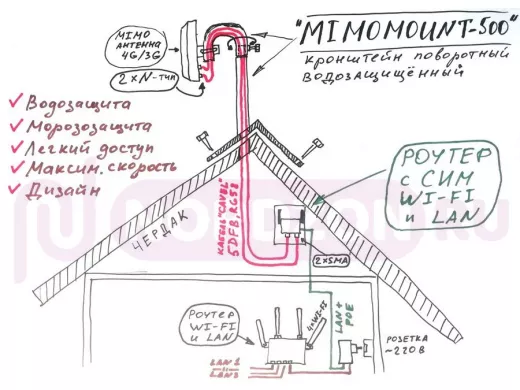 "MIMOMOUNT-500"
кронштейн поворотный
водозащищённый
MIMO
АНТЕННА
4G/3G
2×N-тип
Водозащита
Морозозащита
Легкий доступ
Максим. скорость
Дизайн
РОУТЕР
С СИМ
WI-FI
и LAN
ЧЕРДАК
КАБЕЛЬ "CAVEL"
5DFB, RG58
2×SMA
LAN+
POE
РОУТЕР
WI-FI
и LAN
4×WI-FI
РОЗЕТКА
~220В
LAN1
LAN2